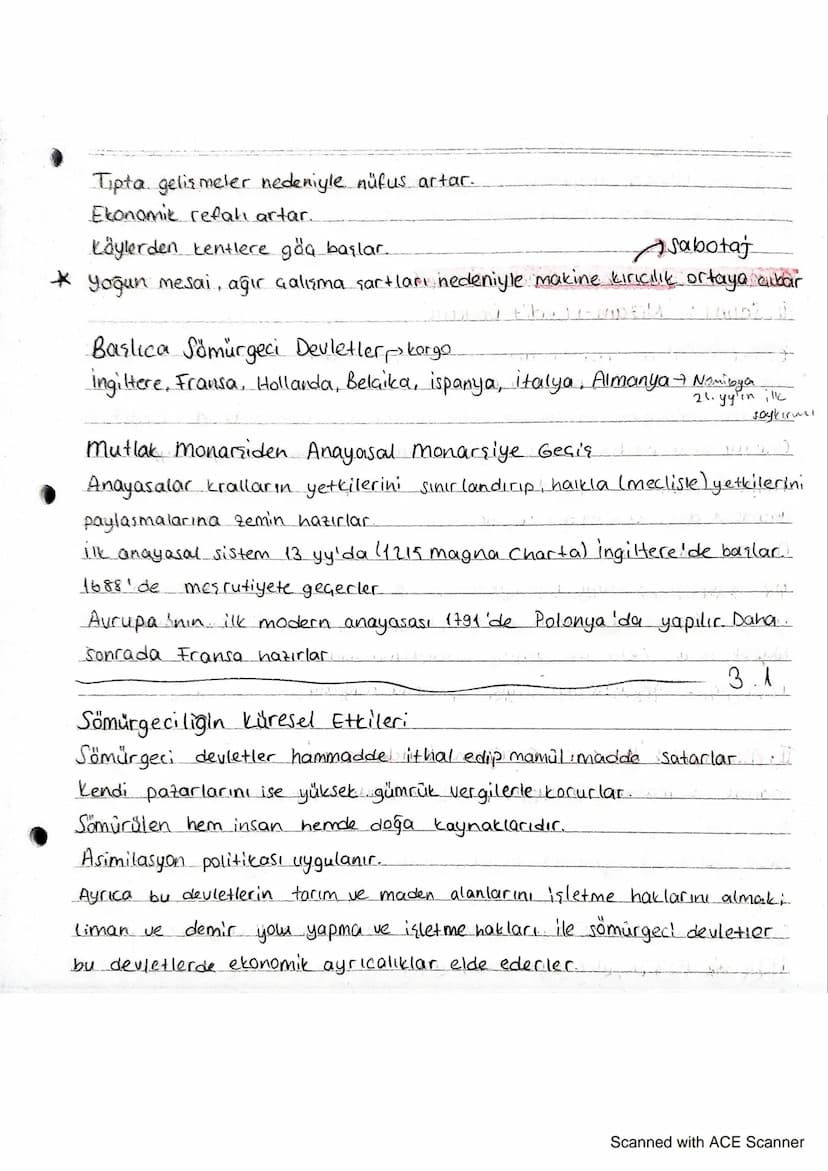 Tıpta gelişmeler nedeniyle nüfus artar.
Ekonomik refah artar.
Köylerden kentlere göç başlar.
→ sabotaj
* yoğun mesai, ağır çalışma şartları nedeniyle makine kırıcılık ortaya çıkar
Başlıca Sömürgeci Devletler → kargo
İngiltere, Fransa, Hollanda, Belçika, ispanya, italya, Almanya → Namibya
21.yy'ın ilk
soykırımı
Mutlak Monarşiden Anayasal Monarşiye Geçiş
Anayasalar kralların yetkilerini sınırlandırıp, halkla (meclisle) yetkilerini
paylaşmalarına zemin hazırlar
ilk anayasal sistem 13 yy'da (1215 magna Charta) İngiltere'de başlar.
1688'de meşrutiyete geçerler
Avrupa'nın ilk modern anayasası 1791'de Polonya'da yapılır. Daha
sonrada Fransa hazırlar
3.1
Sömürgeciliğin Küresel Etkileri
Sömürgeci devletler hammadde ithal edip mamül madde satarlar
Kendi pazarlarını ise yüksek gümrük vergilerle korurlar.
Sömürülen hem insan hemde doğa kaynaklarıdır.
Asimilasyon politikası uygulanır.
Ayrıca bu devletlerin tarım ve maden alanlarını işletme haklarını almak
liman ve demir yolu yapma ve işletme hakları ile sömürgeci devletler
bu devletlerde ekonomik ayrıcalıklar elde ederler.
Scanned with ACE Scanner